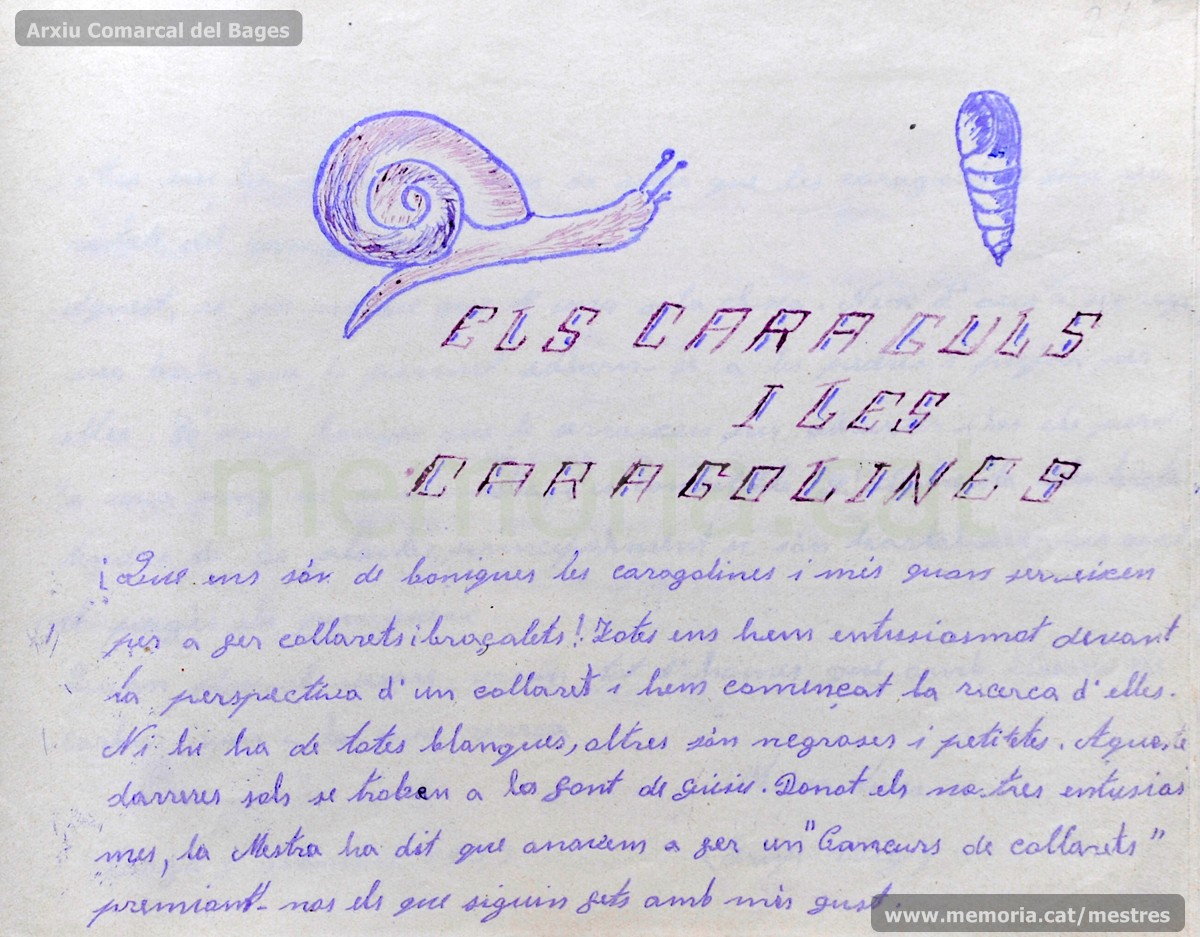 Arxiu Comarcal del Bages
ELS CARAGULS
I LES
CARAGOLINES
memoria.cat
¡Que ens són de boniques les caragolines i més quan serveixen
per a fer collarets i braçalets! Totes ens hem entusiasmat devant
la perspectiva d'un collaret i hem començat la ricerca d'elles.
Ni hi ha de totes blanques, altres són negroses i petitetes. Aqueste
darreres sols se troben a la font de . Donat els nostres entusias
mes, la Mestra ha dit que anavem a fer un "Concurs de collarets"
premiant-nos els que siguin fets amb més gust.
www.memoria.cat/mestres